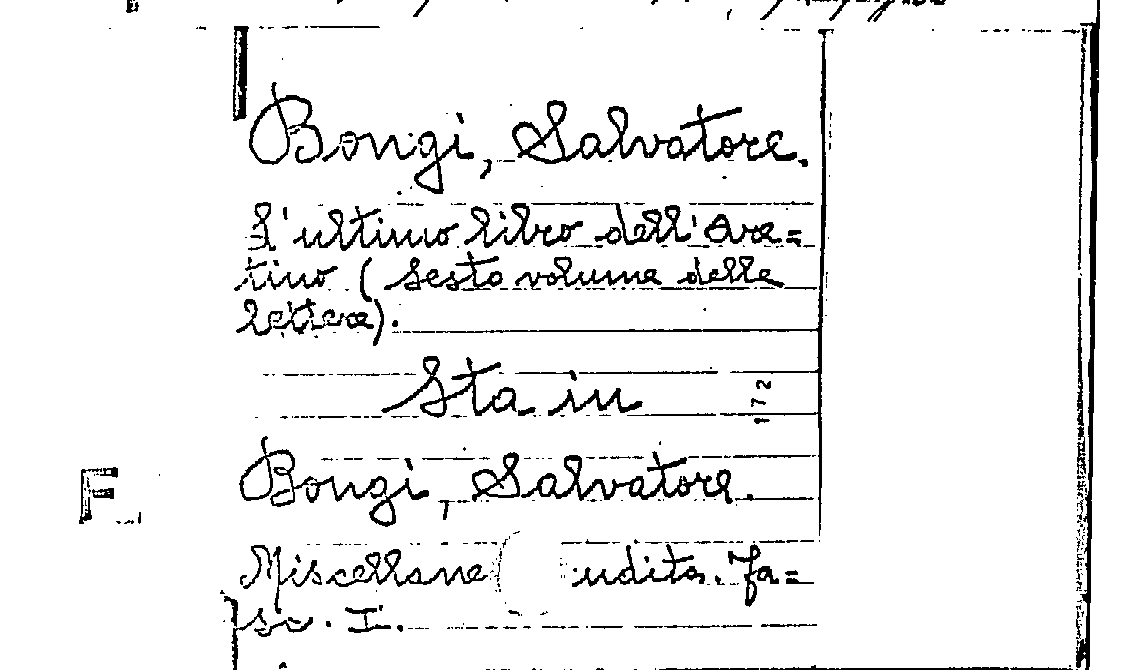 Bongi, Salvatore.
L'ultimo libro dell'Are=
tino (sesto volume delle
lettere).
Sta in
172
Bongi, Salvatore.
F
Miscellane udita. Fa=
sc. I.